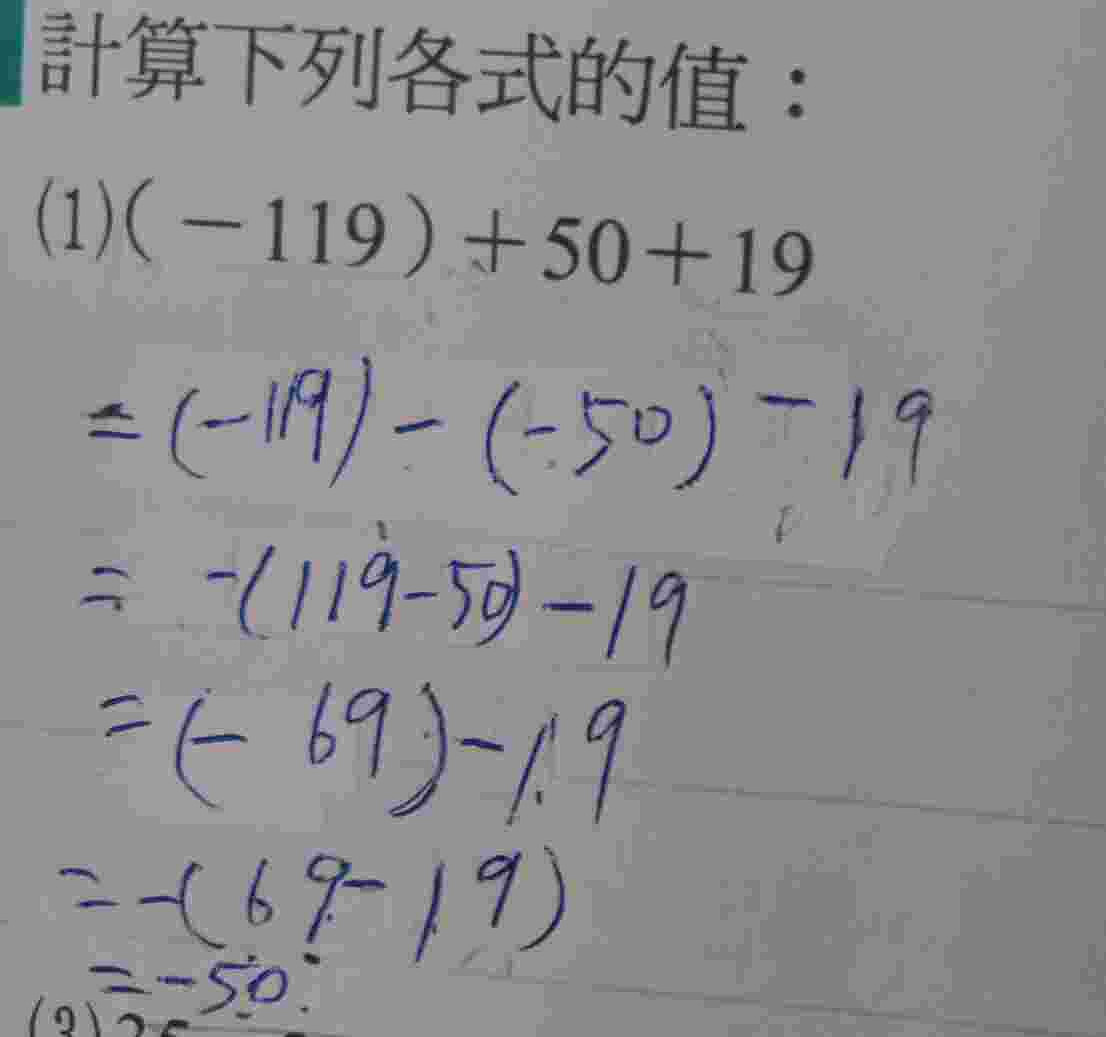 計算下列各式的值：
(1)(－119)＋50＋19
=(-119)-(-50)-19
= -(119-50)-19
=(-69)-19
=-(69-19)
=-50